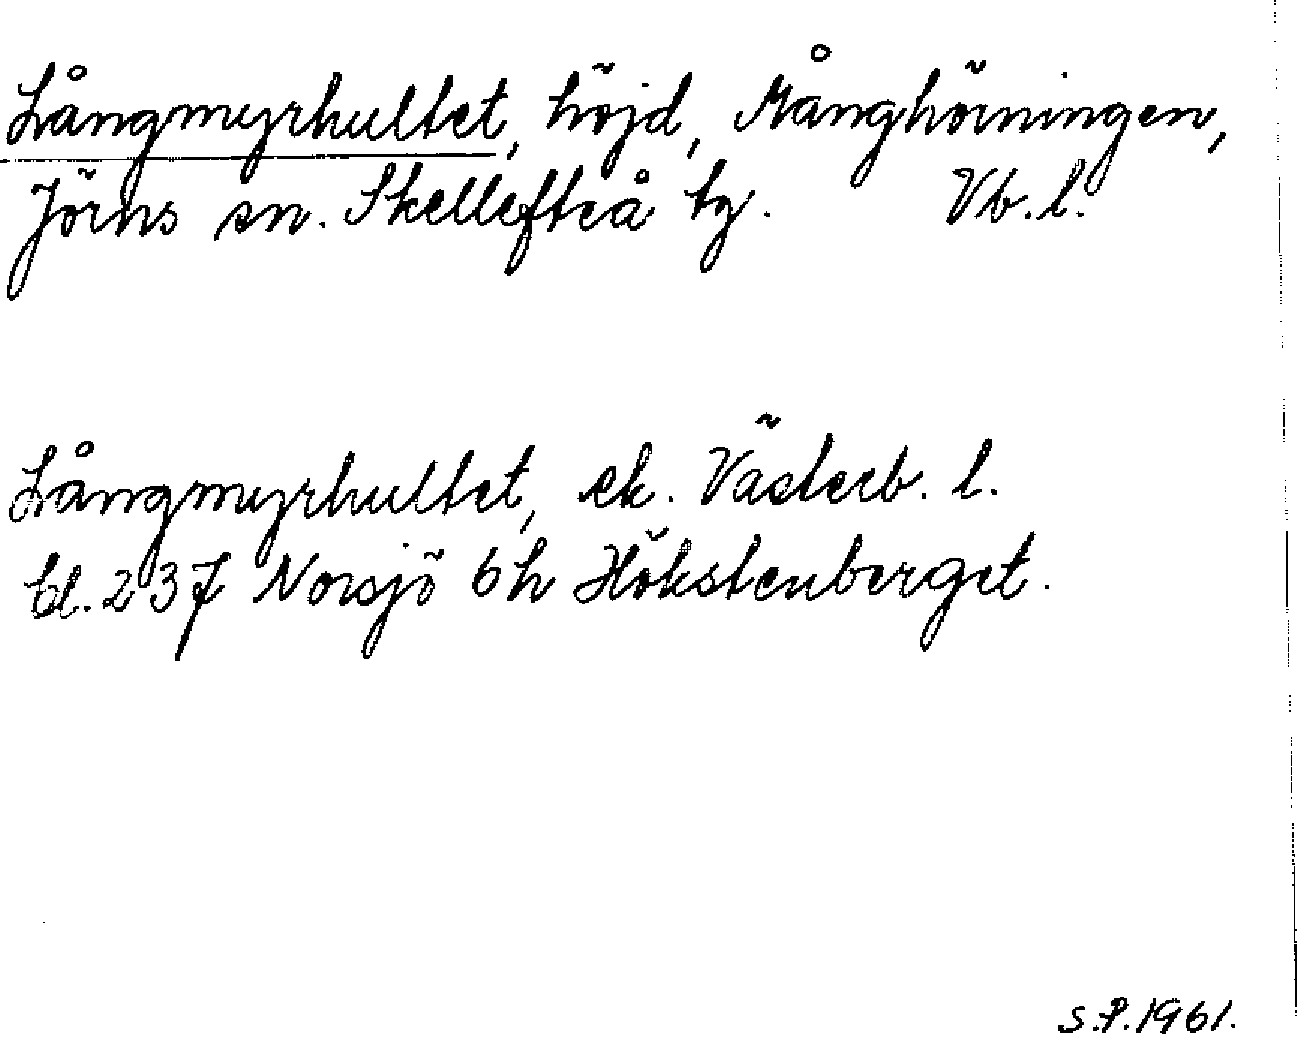 Långmyrhultet, höjd, Månghörningen,
Jörns sn. Skellefteå tg. Vb. l.
Långmyrhultet, ek. Västerb. l.
bl. 237 Norsjö 6h Hökstenberget.
S.P. 1961.